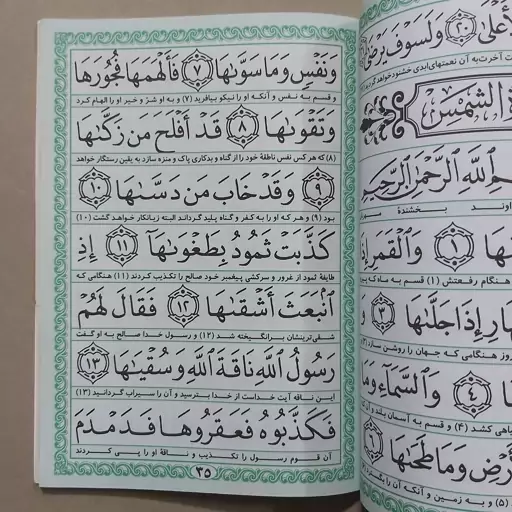 ٱلْأَعْلَىٰ ﴿٢٠﴾ وَلَسَوْفَ يَرْضَىٰ
آخرت به آن نعمتهای ابدی خشنود خواهد
الشمس
ٱللَّهِ ٱلرَّحْمَٰنِ ٱلرَّحِيمِ
بخشندهٔ
هَا ﴿١﴾ وَٱلْقَمَرِ
هنگام رفعتش (۱) قسم به ماه که
إِذَا جَلَّىٰهَا ﴿٣﴾
هنگامی که جهان را روشن سازد
﴿٤﴾ وَٱلسَّمَآءِ
کشد (۴) و قسم به آسمان بلند و
وَمَا طَحَىٰهَا ﴿٦﴾
(۵) و به زمین و آنکه آن را
وَنَفْسٍ وَمَا سَوَّىٰهَا ﴿٧﴾ فَأَلْهَمَهَا فُجُورَهَا
و قسم به نفس و آنکه او را نیکو بیافرید (۷) و به او شرّ و خیر او را الهام کرد
وَتَقْوَىٰهَا ﴿٨﴾ قَدْ أَفْلَحَ مَن زَكَّىٰهَا
(۸) که هر کس نفس ناطقهٔ خود را از گناه و بدکاری پاک و منزه سازد به یقین رستگار خواهد
﴿٩﴾ وَقَدْ خَابَ مَن دَسَّىٰهَا ﴿١٠﴾
بود (۹) و هر که او را به کفر و گناه پلید گرداند البته زیانکار خواهد گشت (۱۰)
كَذَّبَتْ ثَمُودُ بِطَغْوَىٰهَآ ﴿١١﴾ إِذِ
طایفهٔ ثمود از غرور و سرکشی پیغمبر خود صالح را تکذیب کردند (۱۱) هنگامی که
ٱنۢبَعَثَ أَشْقَىٰهَا ﴿١٢﴾ فَقَالَ لَهُمْ
شقی‌ترینشان برانگیخته شد (۱۲) و رسول خدا صالح به او گفت
رَسُولُ ٱللَّهِ نَاقَةَ ٱللَّهِ وَسُقْيَٰهَا ﴿١٣﴾
این ناقه آیت خداست از خدا بترسید و آن را سیراب گردانید (۱۳)
فَكَذَّبُوهُ فَعَقَرُوهَا فَدَمْدَمَ
آن قوم رسول را تکذیب و ناقهٔ او را پی کردند
۳۵